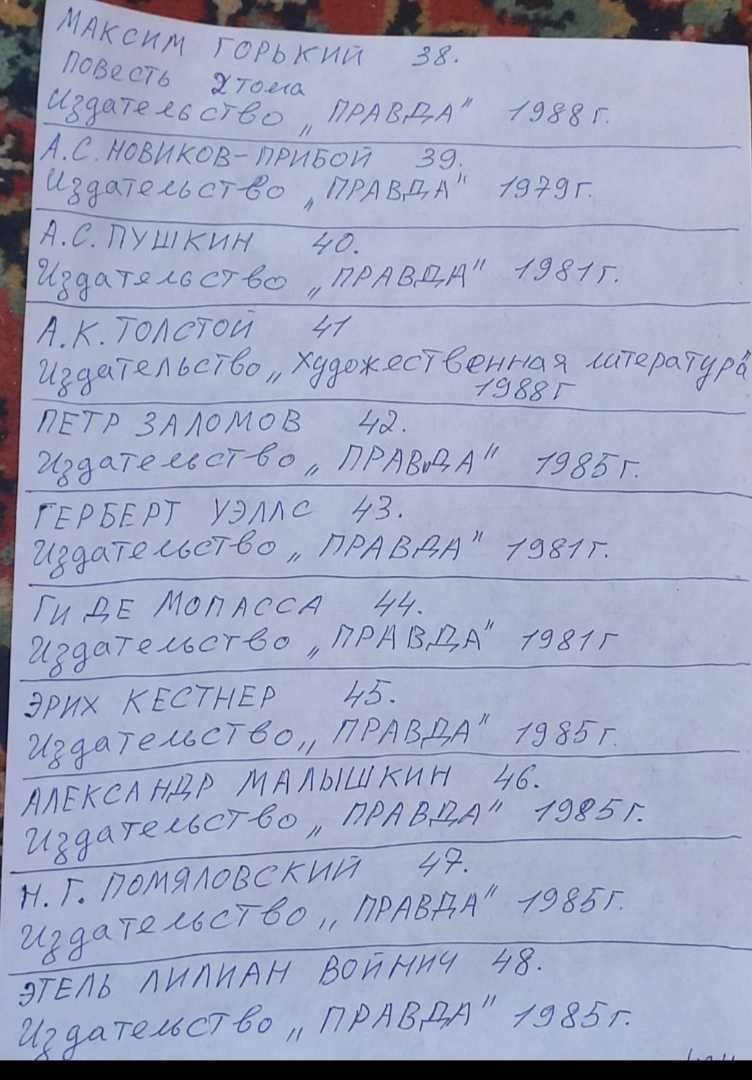 МАКСИМ ГОРЬКИЙ 38.
Повесть 2 тома
Издательство „ПРАВДА" 1988 г.
А.С. НОВИКОВ-ПРИБОЙ 39.
Издательство „ПРАВДА" 1979 г.
А.С. ПУШКИН 40.
Издательство „ПРАВДА" 1981 г.
А.К. ТОЛСТОЙ 41
Издательство „Художественная литература"
1988 г
ПЕТР ЗАЛОМОВ 42.
Издательство „ПРАВДА" 1985 г.
ГЕРБЕРТ УЭЛЛС 43.
Издательство „ПРАВДА" 1981 г.
ГИ ДЕ МОПАССА 44.
Издательство „ПРАВДА" 1981 г
ЭРИХ КЕСТНЕР 45.
Издательство „ПРАВДА" 1985 г.
АЛЕКСАНДР МАЛЫШКИН 46.
Издательство „ПРАВДА" 1985 г.
Н.Г. ПОМЯЛОВСКИЙ 47.
Издательство „ПРАВДА" 1985 г.
ЭТЕЛЬ ЛИЛИАН ВОЙНИЧ 48.
Издательство „ПРАВДА" 1985 г.